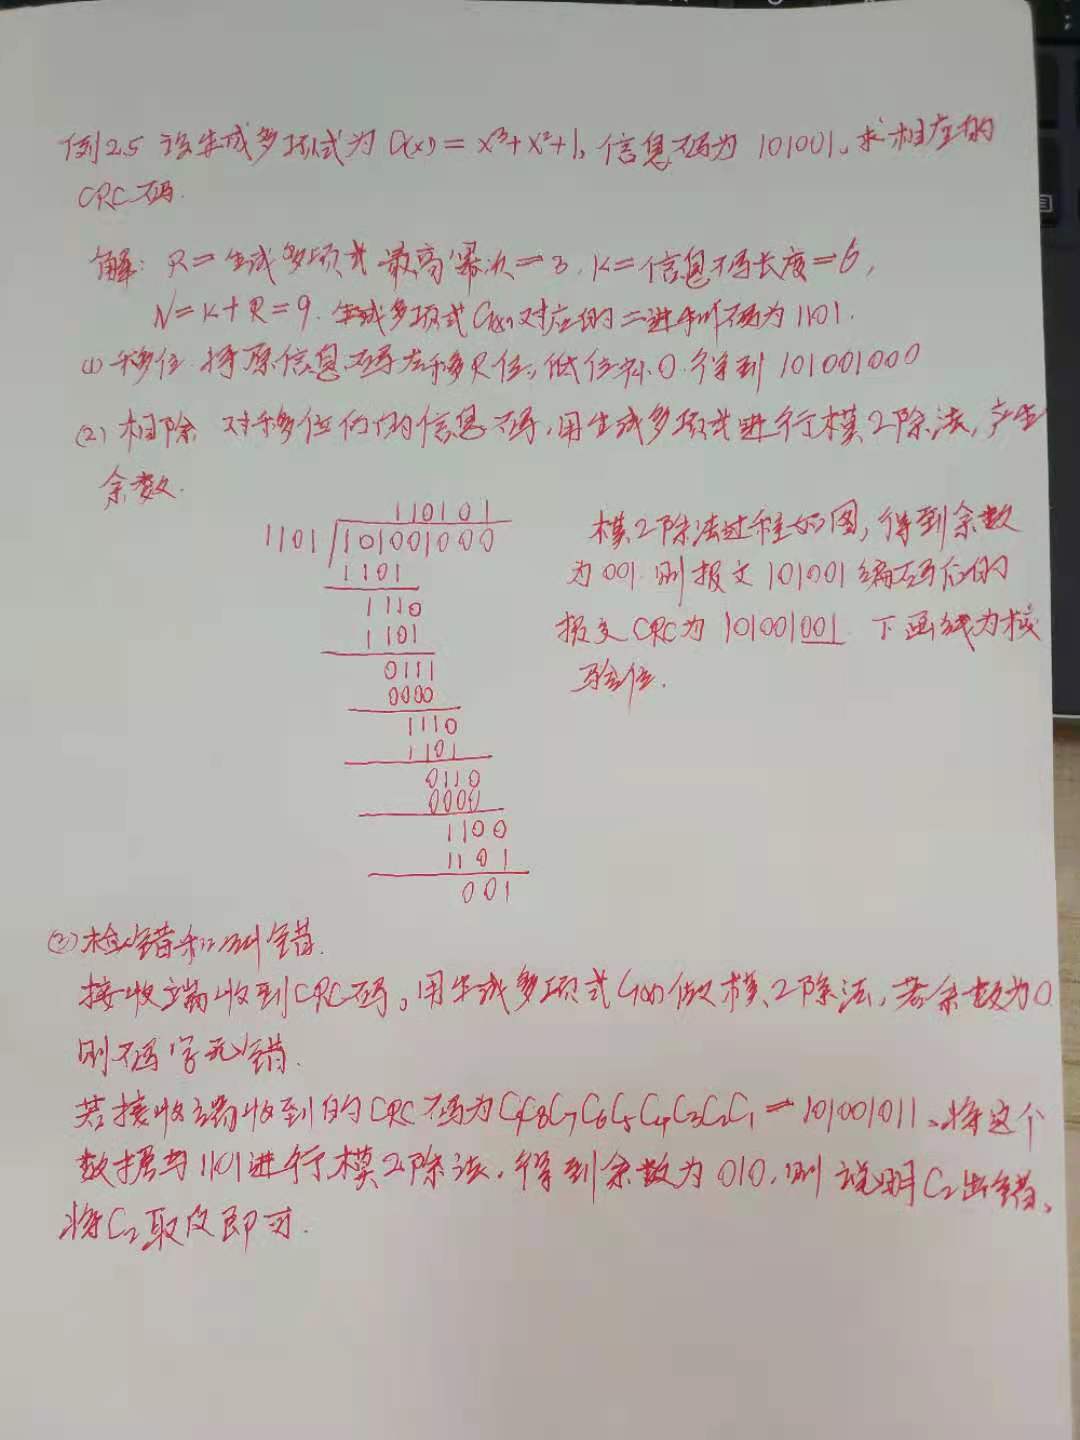 例2.5 设生成多项式为G(x)=x³+x²+1,信息码为101001,求相应的
CRC码.
解:R=生成多项式最高幂次=3,K=信息码长度=6,
N=K+R=9.生成多项式G(x)对应的二进制码为1101.
(1)移位 将原信息码左移R位,低位补0.得到101001000
(2)相除 对移位后的信息码,用生成多项式进行模2除法,产生
余数.
110101
1101 101001000
1101
1110
1101
0111
0000
1110
1101
0110
0000
1100
1101
001
模2除法过程如图,得到余数
为001.则报文101001编码后的
报文CRC为101001001 下画线为校
验位.
(3)检错和纠错.
接收端收到CRC码,用生成多项式G(x)做模2除法,若余数为0
则码字无错.
若接收端收到的CRC码为C9C8C7C6C5C4C3C2C1=101001011、将这个
数据与1101进行模2除法,得到余数为010,则说明C2出错、
将C2取反即可.